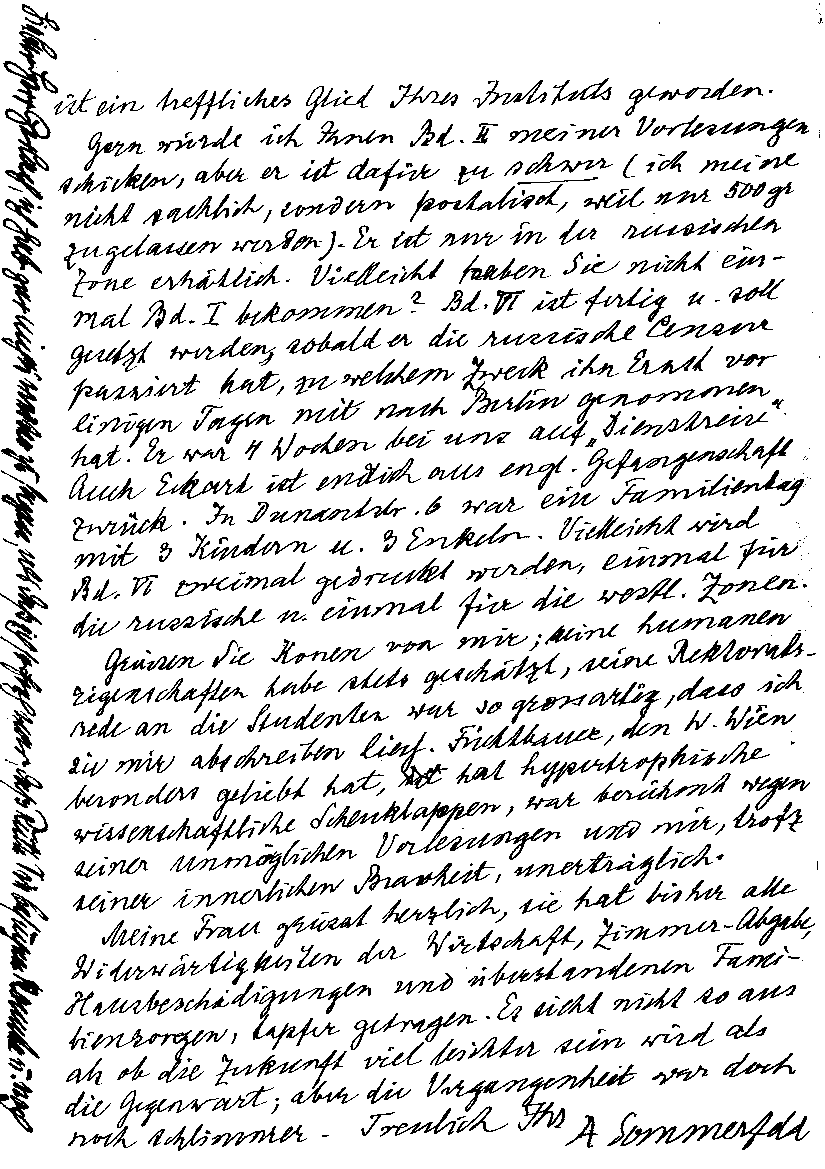 ist ein treffliches Glied Ihres Instituts geworden.
Gern würde ich Ihnen Bd. II meiner Vorlesungen
schicken, aber er ist dafür zu schwer (ich meine
nicht sachlich, sondern postalisch, weil nur 500 gr
zugelassen werden). Er ist nur in der russischen
Zone erhältlich. Vielleicht haben Sie nicht ein-
mal Bd. I bekommen? Bd. VI ist fertig u. soll
gesetzt werden, sobald er die russische Censur
passiert hat, zu welchem Zweck ihn Ernst vor
einigen Tagen mit nach Berlin genommen
hat. Er war 4 Wochen bei uns auf „Dienstreise".
Auch Eckart ist endlich aus engl. Gefangenschaft
zurück. In Dunantstr. 6 war ein Familientag
mit 3 Kindern u. 3 Enkeln. Vielleicht wird
Bd. VI zweimal gedruckt werden, einmal für
die russische u. einmal für die westl. Zonen.
Grüssen Sie Konen von mir; seine humanen
Eigenschaften habe stets geschätzt, seine Rektorats-
rede an die Studenten war so grossartig, dass ich
sie mir abschreiben liess. Füchtbauer, den W. Wien
besonders geliebt hat, hat hypertrophische
wissenschaftliche Scheuklappen, war berühmt wegen
seiner unmöglichen Vorlesungen und mir, trotz
seiner innerlichen Bravheit, unerträglich.
Meine Frau grüsst herzlich, sie hat bisher alle
Widerwärtigkeiten der Wirtschaft, Zimmer-Abgabe,
Hausbeschädigungen und überstandenen Fami-
liensorgen, tapfer getragen. Es sieht nicht so aus
als ob die Zukunft viel leichter sein wird als
die Gegenwart; aber die Vergangenheit war doch
noch schlimmer - Treulich Ihr
A Sommerfeld